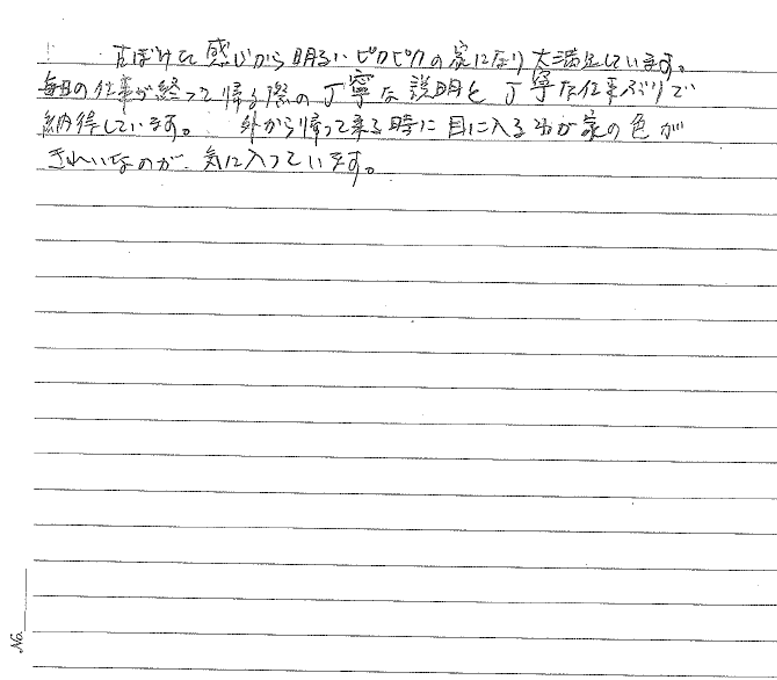 古ぼけた感じから明るいピカピカの家になり大満足しています。
毎日の仕事が終って帰る際の丁寧な説明と丁寧な仕事ぶりで
納得しています。 外から帰って来る時に目に入るわが家の色が
きれいなのが、気に入っています。
No.